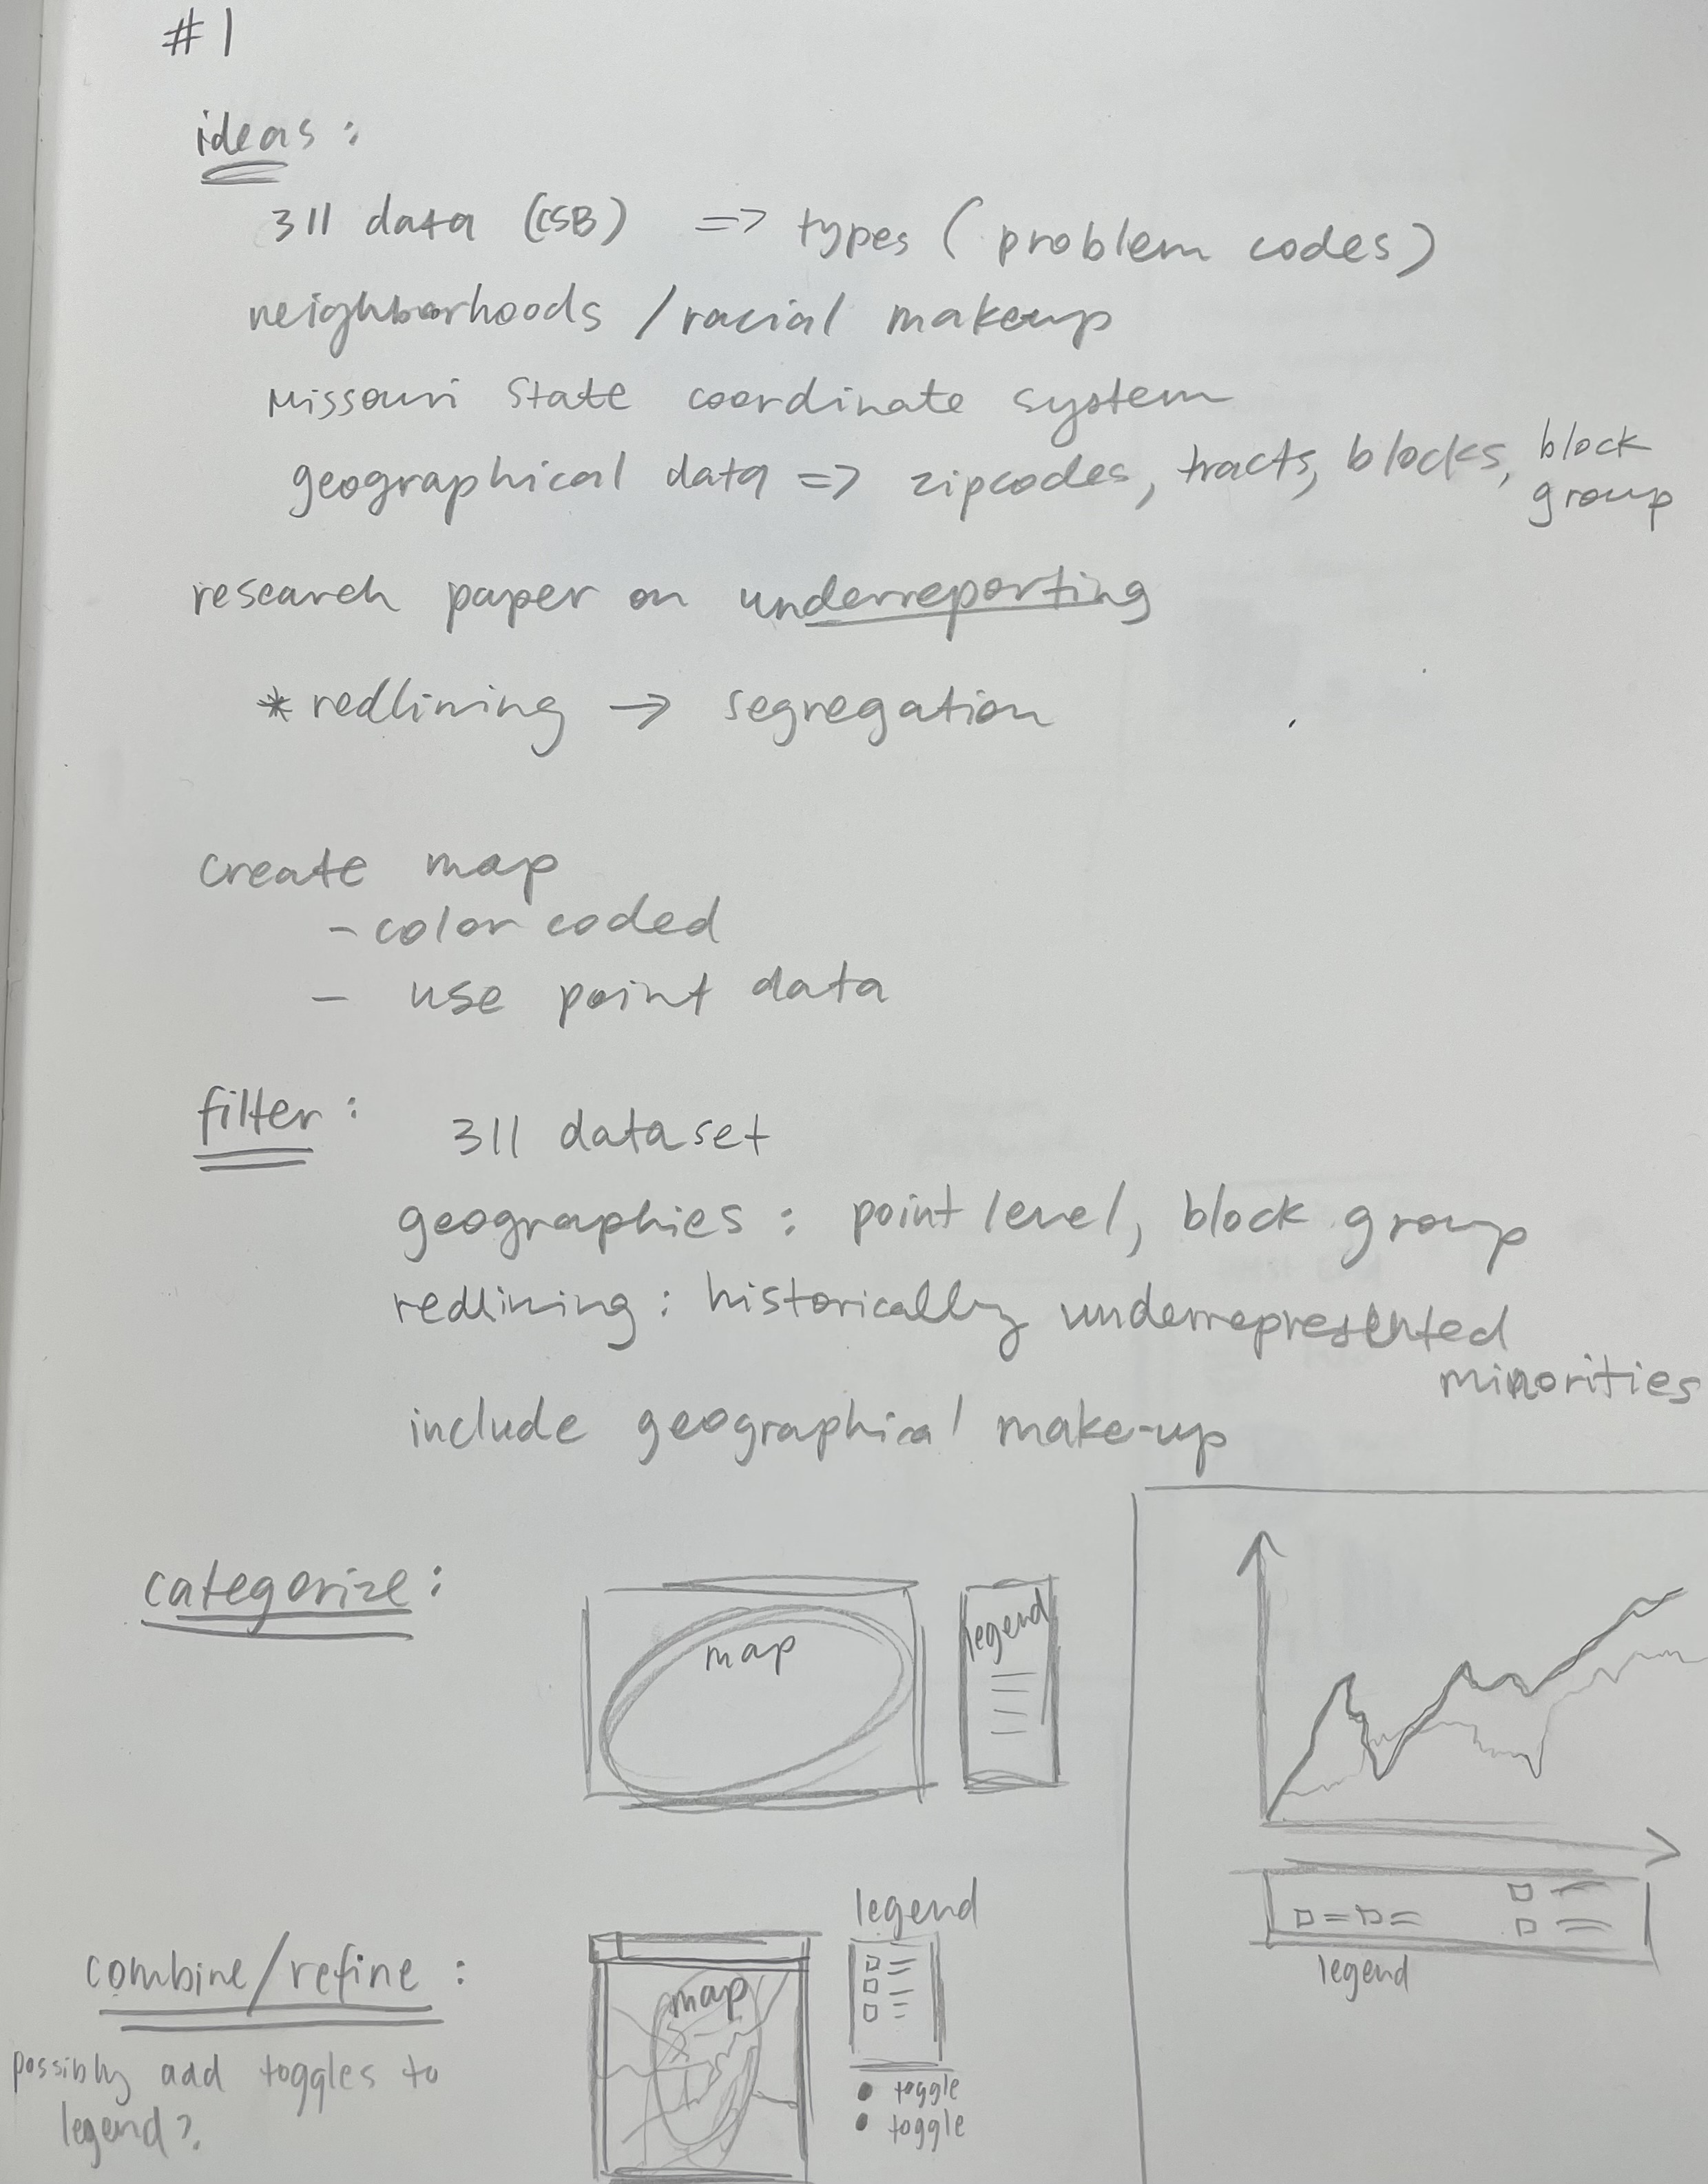 #1
ideas:
311 data (CSB) => types (problem codes)
neighborhoods / racial makeup
Missouri State coordinate system
geographical data => zipcodes, tracts, blocks, block group
research paper on underreporting
* redlining → segregation
create map
- color coded
- use point data
filter:
311 dataset
geographies: point level, block group
redlining: historically underrepresented
minorities
include geographical make-up
categorize:
map
legend
legend
combine/refine:
possibly add toggles to
legend?
map
legend
• toggle
• toggle